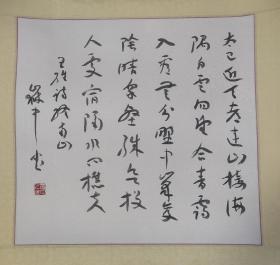 太乙近天都連山接海
隅白雲回望合青靄
入看無分野中峰變
陰晴衆壑殊欲投
人處宿隔水問樵夫
王維詩終南山